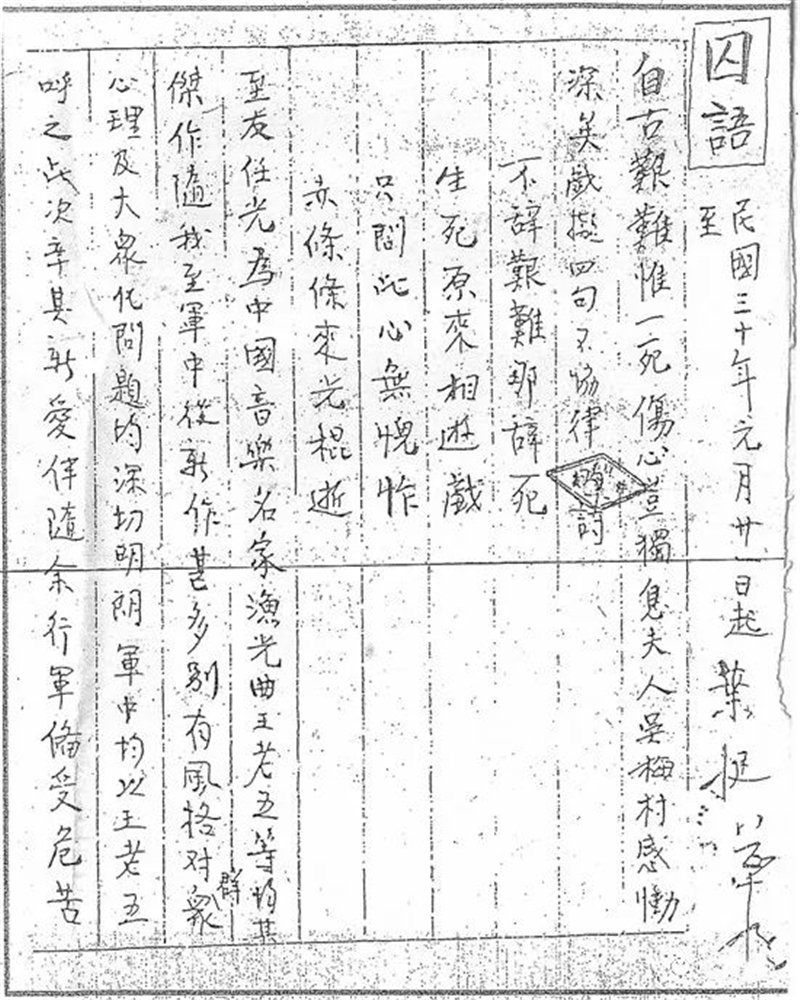 囚語
民國三十年元月廿一日起
至
葉挺
自古艱難惟一死傷心豈獨息夫人吳梅村感慟
深矣戲擬四句不協律詩
不辞艱難那辞死
生死原來相遊戲
只問此心無愧怍
赤條條來光棍逝
至友任光為中國音樂名家漁光曲王老五等均其
傑作隨我至軍中後新作甚多別有風格对群眾
心理及大眾化問題均深切明朗軍中均以王老五
呼之此次率其新愛伴隨余行軍備受危苦